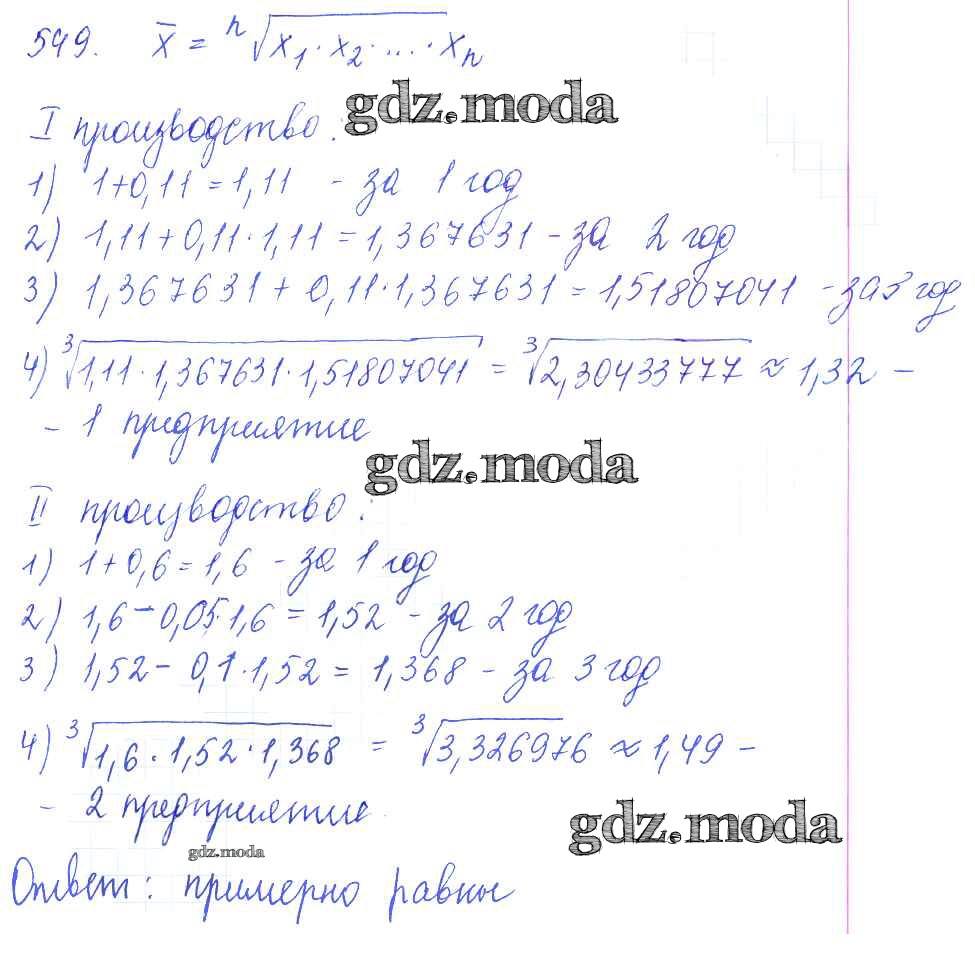 549. x̄ = ⁿ√(x₁ · x₂ · ... · xₙ)
gdz.moda
I производство:
1) 1+0,11 = 1,11 - за 1 год
2) 1,11 + 0,11 · 1,11 = 1,367631 - за 2 год
3) 1,367631 + 0,11 · 1,367631 = 1,51807041 - за 3 год
4) ³√(1,11 · 1,367631 · 1,51807041) = ³√(2,30433777) ≈ 1,32 -
- 1 предприятие
gdz.moda
II производство:
1) 1+0,6 = 1,6 - за 1 год
2) 1,6 - 0,05 · 1,6 = 1,52 - за 2 год
3) 1,52 - 0,1 · 1,52 = 1,368 - за 3 год
4) ³√(1,6 · 1,52 · 1,368) = ³√(3,326976) ≈ 1,49 -
- 2 предприятие.
gdz.moda
gdz.moda
Ответ: примерно равны